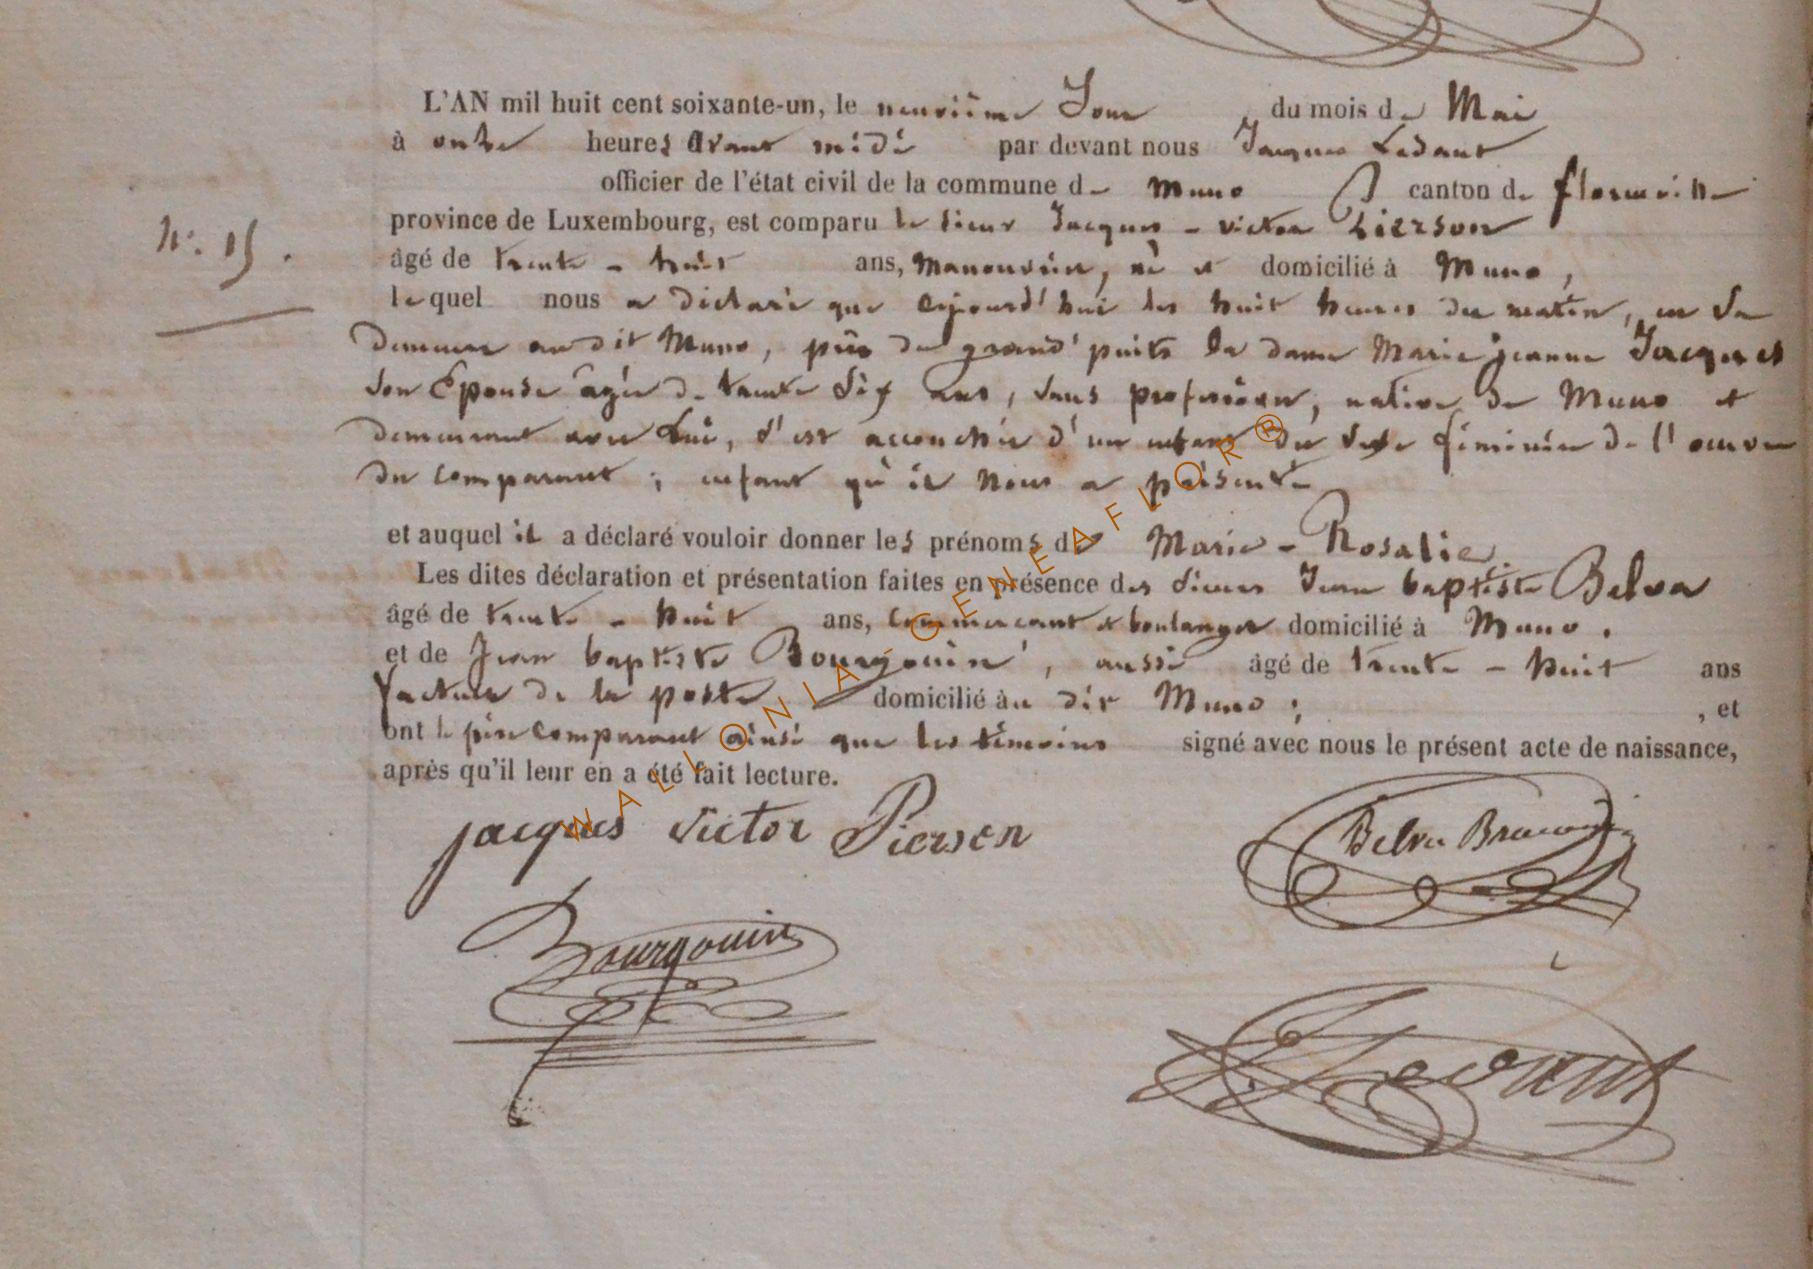 L'AN mil huit cent soixante-un, le neuvième Jour du mois de Mai
à onze heures avant midi par devant nous Jacques Ledant
officier de l'état civil de la commune de Muno canton de florenville
N°. 15.
province de Luxembourg, est comparu le sieur Jacques - victor Pierson
âgé de trente - huit ans, manouvrier, né et domicilié à Muno,
lequel nous a déclaré que aujourd'hui les huit heures du matin, en sa
demeure au dit Muno, près du grand' puits la dame Marie jeanne Jacques
son Epouse âgée de trente six ans, sans profession, native de Muno et
demeurant avec Lui, s'est accouchée d'un enfant du sexe féminin de l'oeuvre
du comparant ; enfant qu'il nous a présenté
et auquel il a déclaré vouloir donner les prénoms de Marie - Rosalie.
Les dites déclaration et présentation faites en présence des sieurs Jean baptiste Belva
âgé de trente - huit ans, commercant et boulanger domicilié à Muno.
et de Jean baptiste Bourgouin, aussi âgé de trente - huit ans
facteur de la poste domicilié au dit Muno ; , et
ont le père comparant ainsi que les témoins signé avec nous le présent acte de naissance,
après qu'il leur en a été fait lecture.
jacques victor Pierson
Belva
Bourgouin
Ledant
WALLONIA - GENEAFLOR®